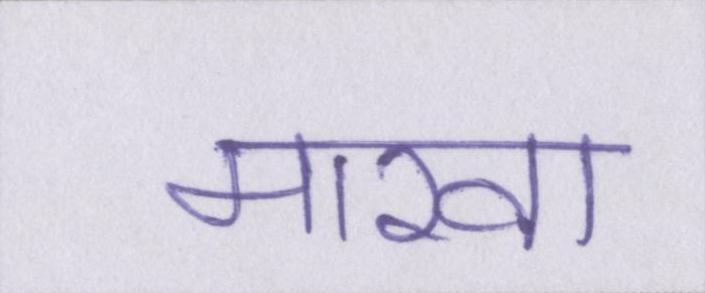 माखा